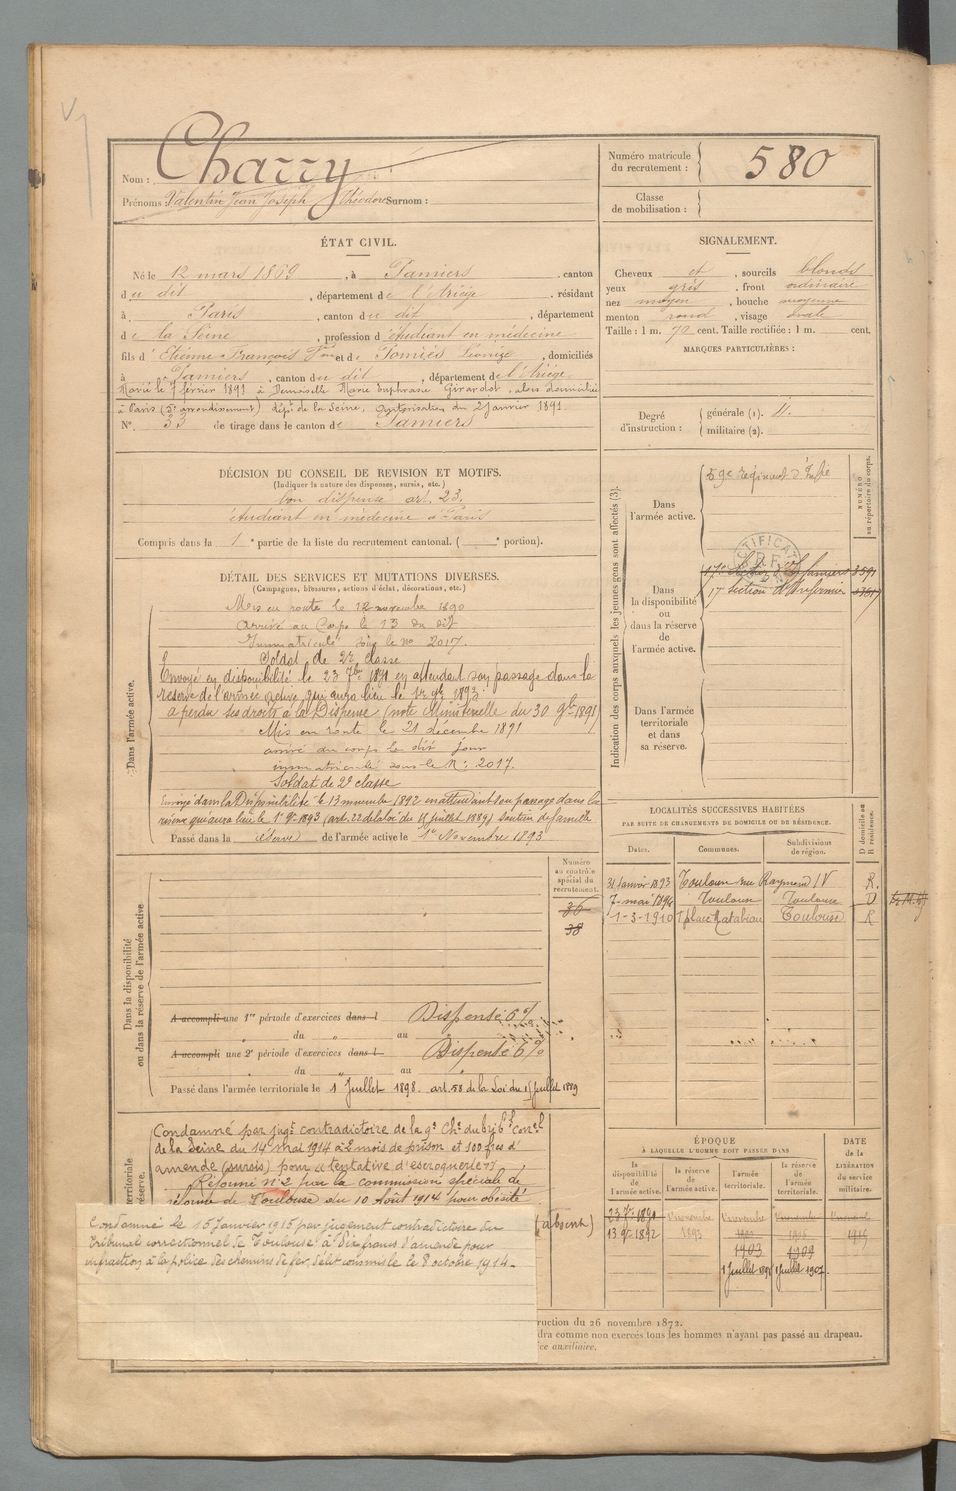 Nom : Charry
Prénoms : Valentin Jean Joseph Théodore Surnom :
Numéro matricule du recrutement : 580
Classe de mobilisation :
ÉTAT CIVIL.
Né le 12 mars 1869, à Pamiers, canton
du dit, département de l'Ariège, résidant
à Paris, canton du dit, département
de la Seine, profession d'étudiant en médecine
fils d'Etienne François et de Pomiès, domiciliés
à Pamiers, canton du dit, département de l'Ariège.
Marié le 7 février 1891 à Demoiselle Marie Euphrasie Girardot, alors domiciliée
à Paris (5e arrondissement) dépt de la Seine, autorisation du 2 janvier 1891
N° 33 de tirage dans le canton de Pamiers
SIGNALEMENT.
Cheveux et, sourcils blonds
yeux gris, front ordinaire
nez moyen, bouche moyenne
menton rond, visage ovale
Taille : 1 m. 70 cent. Taille rectifiée : 1 m. cent.
MARQUES PARTICULIÈRES :
Degré d'instruction : générale (1).
militaire (2).
DÉCISION DU CONSEIL DE REVISION ET MOTIFS.
(Indiquer la nature des dispenses, sursis, etc.)
bon dispensé art. 23.
étudiant en médecine à Paris
Compris dans la 1e partie de la liste du recrutement cantonal. ( e portion).
DÉTAIL DES SERVICES ET MUTATIONS DIVERSES.
(Campagnes, blessures, actions d'éclat, décorations, etc.)
Dans l'armée active.
Mis en route le 12 novembre 1890
Arrivé au Corps le 13 du dit
Immatriculé sous le no 2017.
Soldat de 2e classe
Envoyé en disponibilité le 23 7bre 1891 en attendant son passage dans la
réserve de l'armée active qui aura lieu le 1er 9bre 1893
a perdu ses droits à la Dispense (note Ministérielle du 30 9bre 1891)
Mis en route le 21 décembre 1891
arrivé au corps le dit jour
immatriculé sous le N° 2017.
Soldat de 2e classe
Envoyé dans la Disponibilité le 13 novembre 1892 en attendant son passage dans la
réserve qui aura lieu le 1er 9bre 1893 (art. 22 de la loi du 15 juillet 1889) soutien de famille
Passé dans la réserve de l'armée active le 1er Novembre 1893
Indication des corps auxquels les jeunes gens sont affectés (3).
NUMÉRO au répertoire du corps.
Dans l'armée active.
59e régiment d'Infie
Dans la disponibilité ou dans la réserve de l'armée active.
17e d'Infirmiers 3591
17e Section d'Infirmiers
Dans l'armée territoriale et dans sa réserve.
LOCALITÉS SUCCESSIVES HABITÉES
PAR SUITE DE CHANGEMENTS DE DOMICILE OU DE RÉSIDENCE.
D domicile ou R résidence.
Dates. Communes. Subdivisions de région.
31 Janvier 1893 Toulouse rue Raymond IV R.
7 mai 1894 Toulouse Toulouse D
1-3-1910 7 place Matabiau Toulouse R
Dans la disponibilité ou dans la réserve de l'armée active
Numéro au contrôle spécial du recrutement.
36
38
A accompli une 1re période d'exercices dans l Dispensé 6%
du au
A accompli une 2e période d'exercices dans l Dispensé 6%
du au
Passé dans l'armée territoriale le 1 Juillet 1898. art. 58 de la Loi du 15 Juillet 1889
Condamné par jugt contradictoire de la 9e Che du tribal Correl
de la Seine du 14 mai 1914 à 2 mois de prison et 100 frcs d'
amende (sursis) pour "tentative d'escroquerie"
Réformé n° 2 par la commission spéciale de
réforme de Toulouse du 10 Août 1914 pour obésité
(absent)
Condamné le 15 Janvier 1915 par jugement contradictoire du
Tribunal correctionnel de Toulouse à dix francs d'amende pour
infraction à la police des chemins de fer, délit commis le 8 octobre 1914.
territoriale
réserve.
ÉPOQUE
À LAQUELLE L'HOMME DOIT PASSER DANS
DATE de la LIBÉRATION du service militaire.
la disponibilité de l'armée active. la réserve de l'armée active. l'armée territoriale. la réserve de l'armée territoriale.
23 7bre 1891 1er novembre 1er novembre 1er novembre 1er novembre
13 9bre 1892 1893
1903 1909
1 Juillet 1898 1 Juillet 1907
ruction du 26 novembre 1872.
dra comme non exercés tous les hommes n'ayant pas passé au drapeau.
ice auxiliaire.